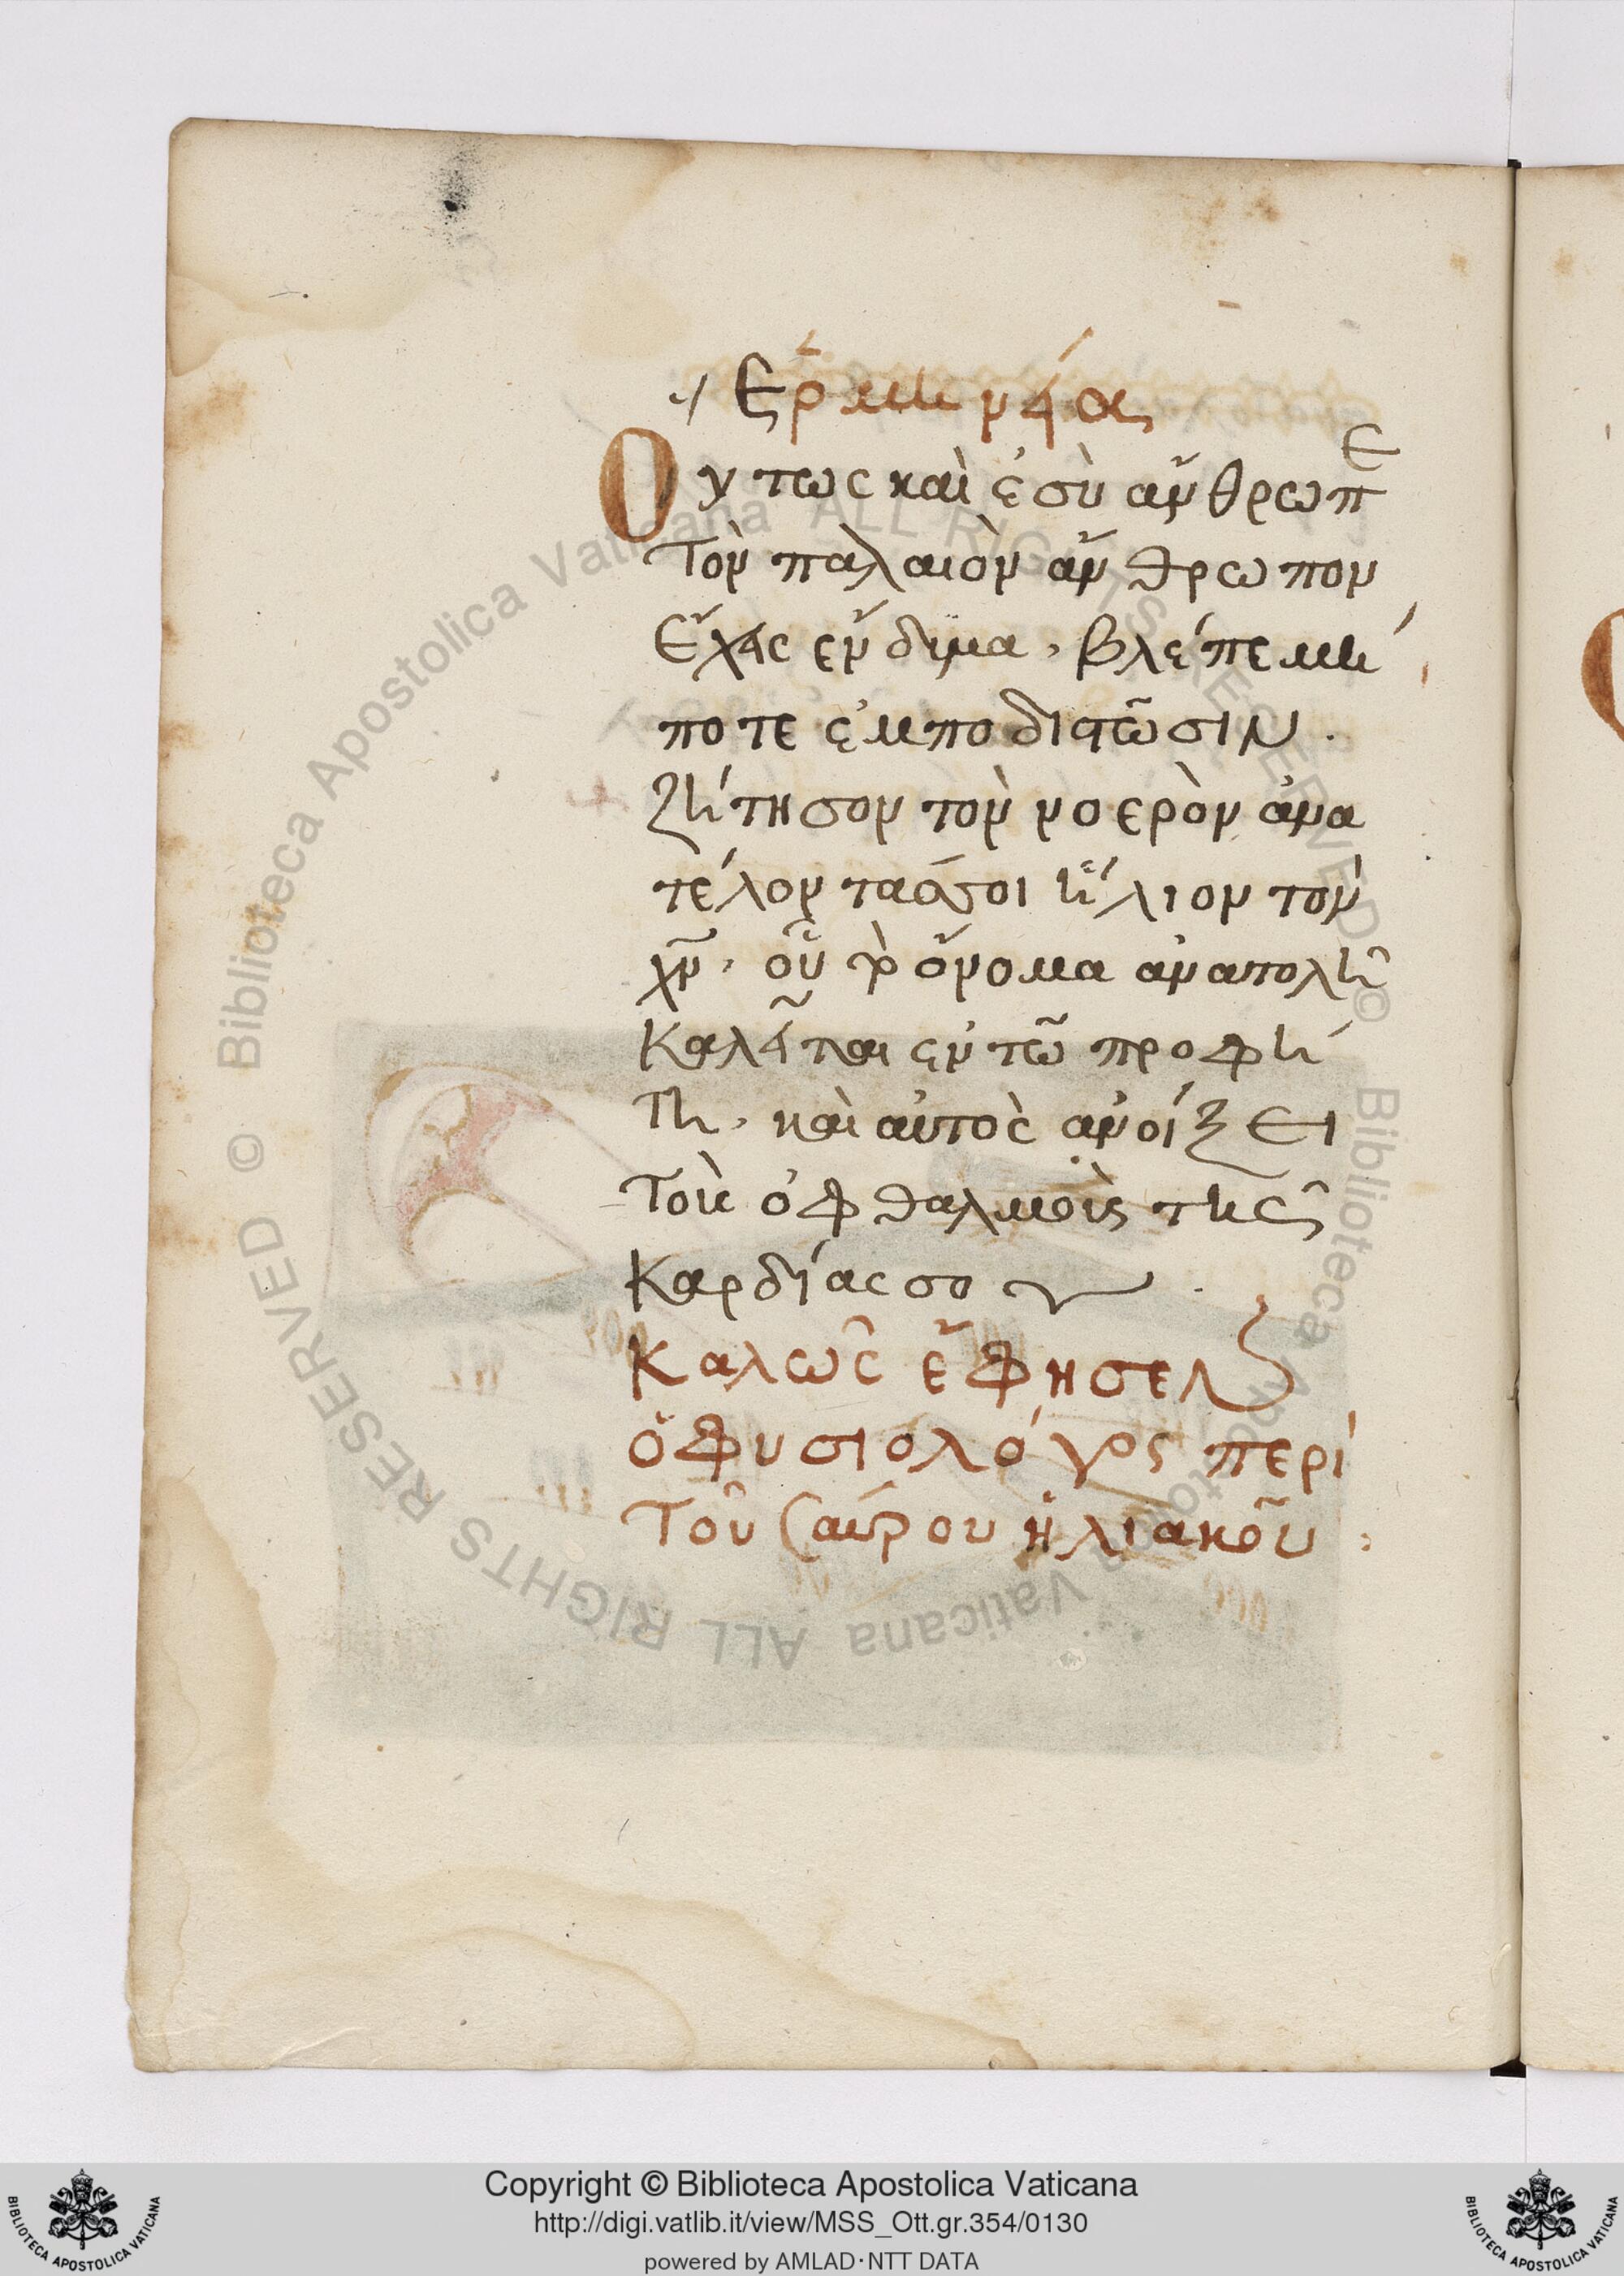 Ἑρμηνείας
Ούτως καὶ ἐσὺ ἄνθρωπε
Τὸν παλαιὸν ἄνθρωπον
Εἴχεις ἔνδυμα, βλέπε μή
ποτε ἐμποδιστῶσιν.
Ζήτησον τὸν νοερὸν ἀνα
τέλοντα
ἥλιον τὸν
χν̅, οὗ τὸ ὄνομα ἀνατολὴ
Καλεῖται ἐν τῶ προφή
τη, καὶ αὐτὸς ἀνοίξει
Τοὺς ὀφθαλμοὺς τῆς
Καρδίας σου.
Καλῶς ἔφησεν
ὁ φυσιολόγος περὶ
Τοῦ σαύρου ἡλιακοῦ :
© Biblioteca Apostolica Vaticana ALL RIGHTS RESERVED © Biblioteca Apostolica Vaticana ALL RIGHTS RESERVED
Copyright © Biblioteca Apostolica Vaticana
http://digi.vatlib.it/view/MSS_Ott.gr.354/0130
powered by AMLAD·NTT DATA
BIBLIOTECA APOSTOLICA VATICANA
BIBLIOTECA APOSTOLICA VATICANA